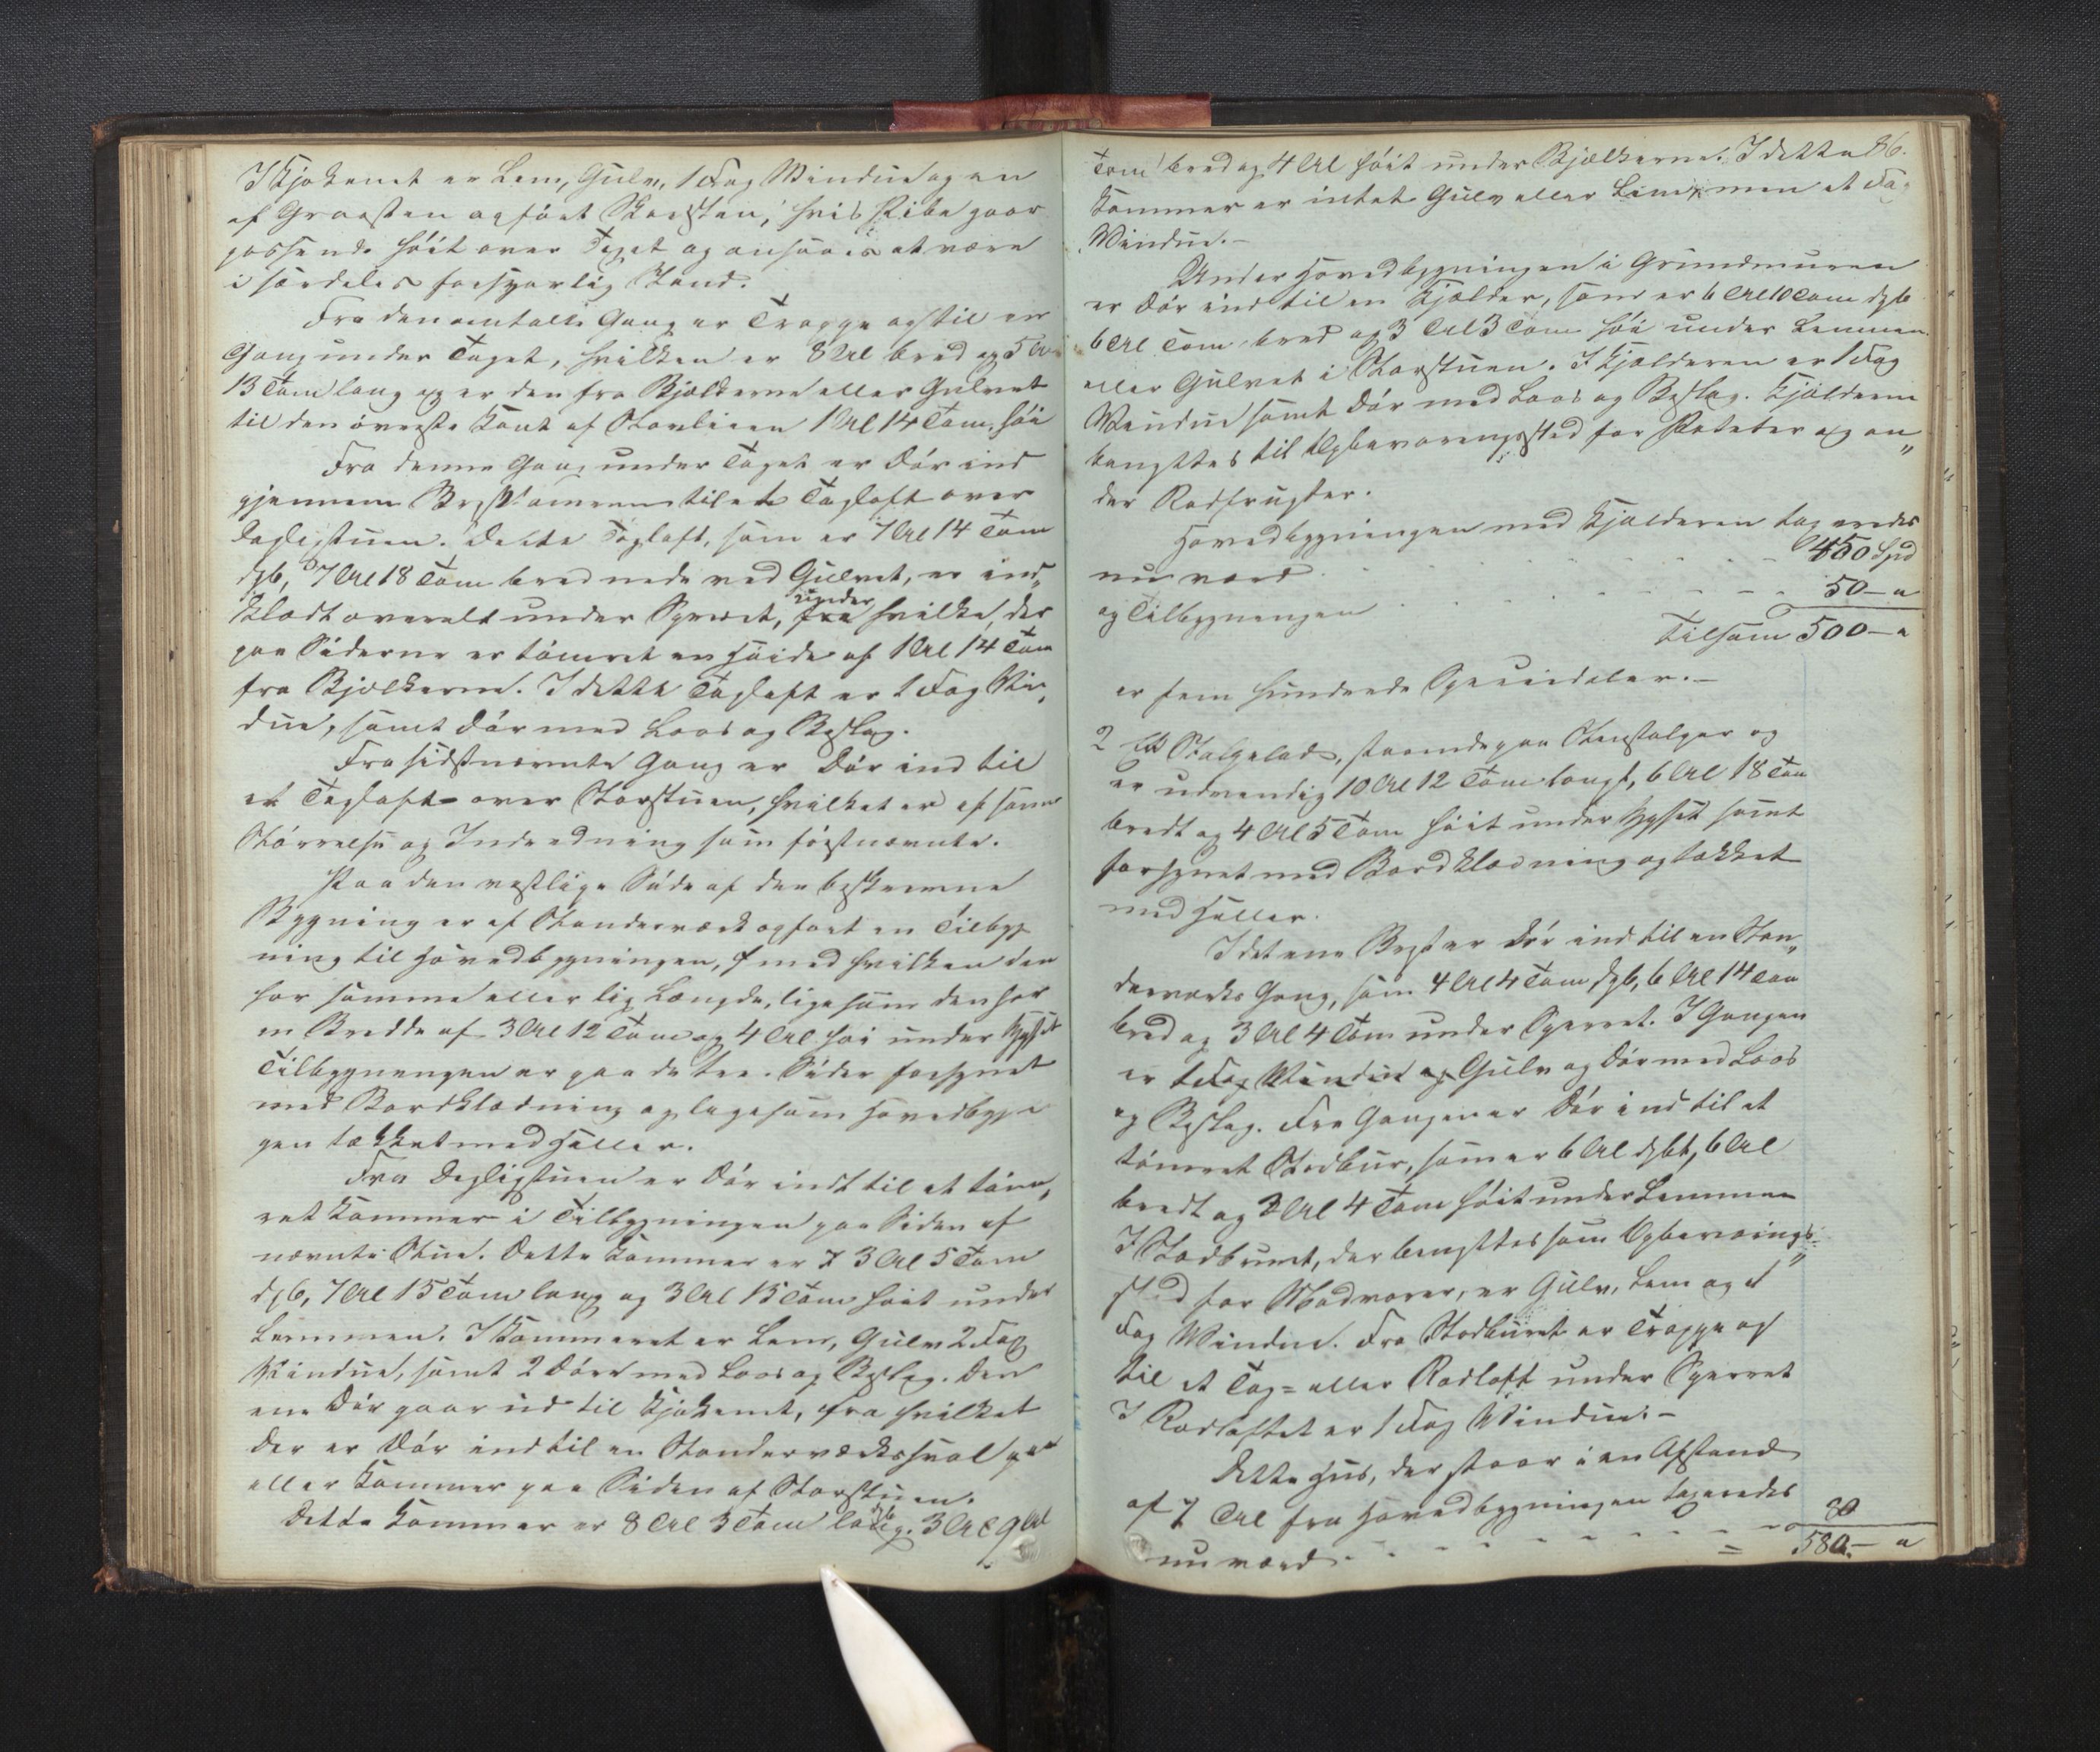 I Kjøkenet er Lem, Gulv, 1 Fag Vindue og en
af Graasten opført Skorsten, hvis Pibe gaar
passende höit over Taget og ansaaes at være
i særdeles forsvarlig Stand.
Fra den omtalte Gang er Trappe op til en
Gang under Taget, hvilken er 8 Al bred og 5 Al
13 Tom lang og er den fra Bjælkerne eller Gulvet
til den överste Kant af Stavlinen 1 Al 14 Tom. höi
Fra denne Gang under Taget er Dör ind
gjennem Brystömren til et Tagloft over
Dagligstuen. Dette Tagloft, som er 7 Al 14 Tom
dyb, 7 Al 18 Tom bred nede ved Gulvet, er ind„
klædt overalt under Sperret, fra under hvilke, der
paa Siderne er tömret en Höide af 1 Al 14 Tom
fra Bjelkerne. I dette Tagloft er 1 Fag Vin„
due, samt Dör med Laas og Beslag.
Fra sidstnævnte Gang er Dör ind til
et Tagloft over Storstuen, hvilket er af samme
Störrelse og Indredning som förstnævnte.
Paa den vestlige Side af den beskrevne
Bygning er af Standerværk opfört en Tilbyg
ning til Hovedbygningen, med hvilken den
har samme eller lig Længde, ligesom den har
en Bredde af 3 Al 12 Tom og 4 Al höi under
Tilbygningen er paa de tre Sider forsynet
med Bordklædning og ligesom Hovedbyg
gen tækket med Heller.
Fra Dagligstuen er Dör indt til et töm„
ret Kammer i Tilbygningen paa Siden af
nævnte Stue. Dette Kammer er 3 Al 5 Tom
dyb, 7 Al 15 Tom lang og 3 Al 13 Tom höit under
Lemmen. I Kammeret er Lem, Gulv 2 Fag
Vindue, samt 2 Döre med Laas og Beslag. Den
ene Dör gaar ud til Kjøkenet, fra hvilket
der er Dör ind til en Standerværkssval
eller Kammer paa Siden af Storstuen.
Dette Kammer er 8 Al 3 Tom lang. dyb 3 Al 9
Tom bred og 4 Al höit under Bjælkerne. I dette 86.
Kammer er intet Gulv eller Lem, men et Fag
Vindue. –
Under Hovedbygningen i Grundmuren
er Dör ind til en Kjælder, som er 6 Al 10 Tom dyb
6 Al Tom bred og 3 Al 3 Tom höi under Lemmen
eller Gulvet i Storstuen. I Kjælderen er 1 Fag
Vindue samt Dör med Laas og Beslag. Kjælderen
benyttes til Opbevaringssted for Poteter og an„
der Rodfrugter.
Hovedbygningen med Kjælderen taxeredes
nu værd 450 Spd
og Tilbygningen 50 – "
Tilsam 500 – "
er fem hundrede Speciedaler. –
2 Et Stolpelad, staaende paa Stenstolper og
er udvendig 10 Al 12 Tom langt, 6 Al 18 Tom
bredt og 4 Al 5 Tom höit under samt
forsynet med Bordklædning og tækket
med Heller.
I det ene Bryst er Dör ind til en Stan„
derværks Gang, som 4 Al 4 Tom dyb, 6 Al 14 Tom
bred og 3 Al 4 Tom under Sperret. I Gangen
er 1 Fag Vindue og Gulv og Dör med Laas
og Beslag. Fra Gangen er Dör ind til et
tömret Stodbur, som er 6 Al dybt, 6 Al
bredt og 3 Al 4 Tom höit under Lemmen
I Stodburet, der benyttes som Opbevarings„
sted for Madvarer, er Gulv, Lem og et
Fag Vindue. Fra Stodburet er Trappe op
til et Tag= eller Rodloft under Sperret
I Rodloftet er 1 Fag Vindue. –
Dette Hus, der staar i en Afstand
af 7 Al fra Hovedbygningen taxeredes
nu værd 80
580. – "